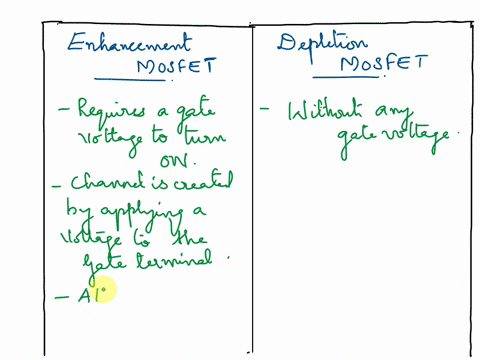 Enhancement
MOSFET
- Requires a gate
voltage to turn
ON.
- Channel is created
by applying a
voltage to the
gate terminal.
- Al
Depletion
MOSFET
- Without any
gate voltage.